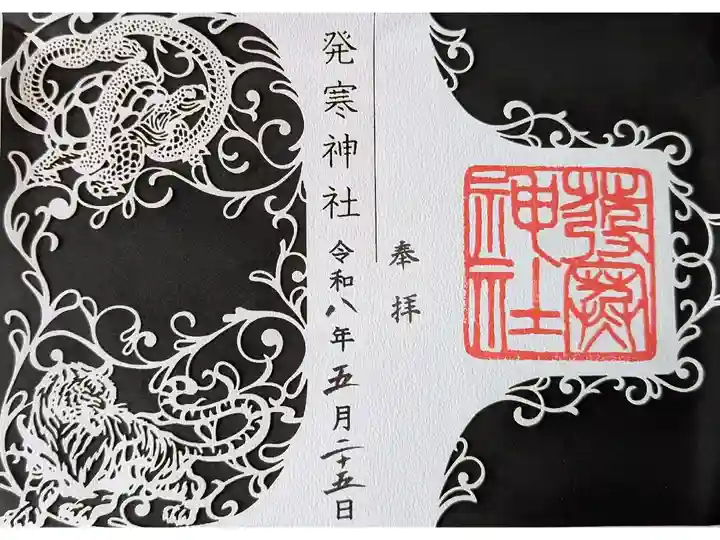 奉拝
發寒
神社
発寒神社
令和八年五月二十五日